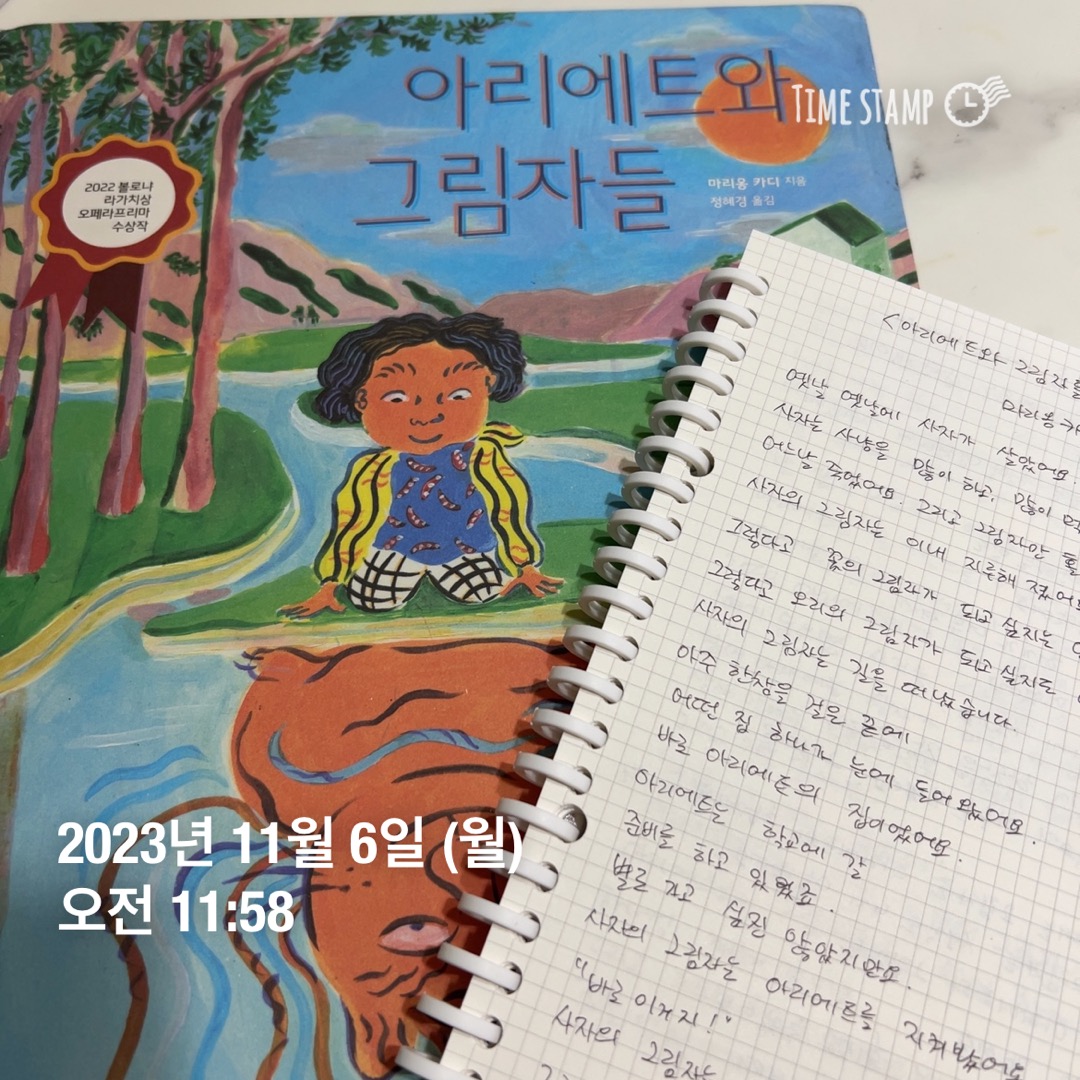 아리에트와
그림자들
TIME STAMP
마리옹 카디 지음
정혜경 옮김
2022 볼로냐
라가치상
오페라프리마
수상작
2023년 11월 6일 (월)
오전 11:58
<아리에트와 그림자들
마리옹 카
옛날 옛날에 사자가 살았어요.
사자는 사냥을 많이 하고, 많이
어느날 죽었어요. 그리고 그림자만
사자의 그림자는 이내 지루해 졌어요
그렇다고 꽃의 그림자가 되고 싶지는
그렇다고 오리의 그림자가 되고 싶지도
사자의 그림자는 길을 떠났습니다.
아주 한참을 걸은 끝에
어떤 집 하나가 눈에 들어왔어요.
바로 아리에트의 집이였어요.
아리에트는 학교에 갈
준비를 하고 있었죠.
별로 가고 싶진 않았지만요.
사자의 그림자는 아리에트를 지켜봤어요
"바로 이거지!"
사자의 그림자는